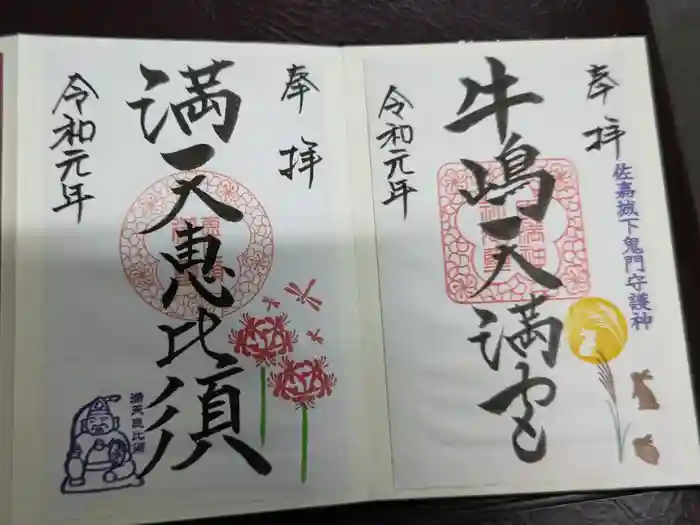 奉拝
佐嘉城下鬼門守護神
牛嶋天満宮
令和元年
奉拝
満天恵比須
令和元年
満天恵比須